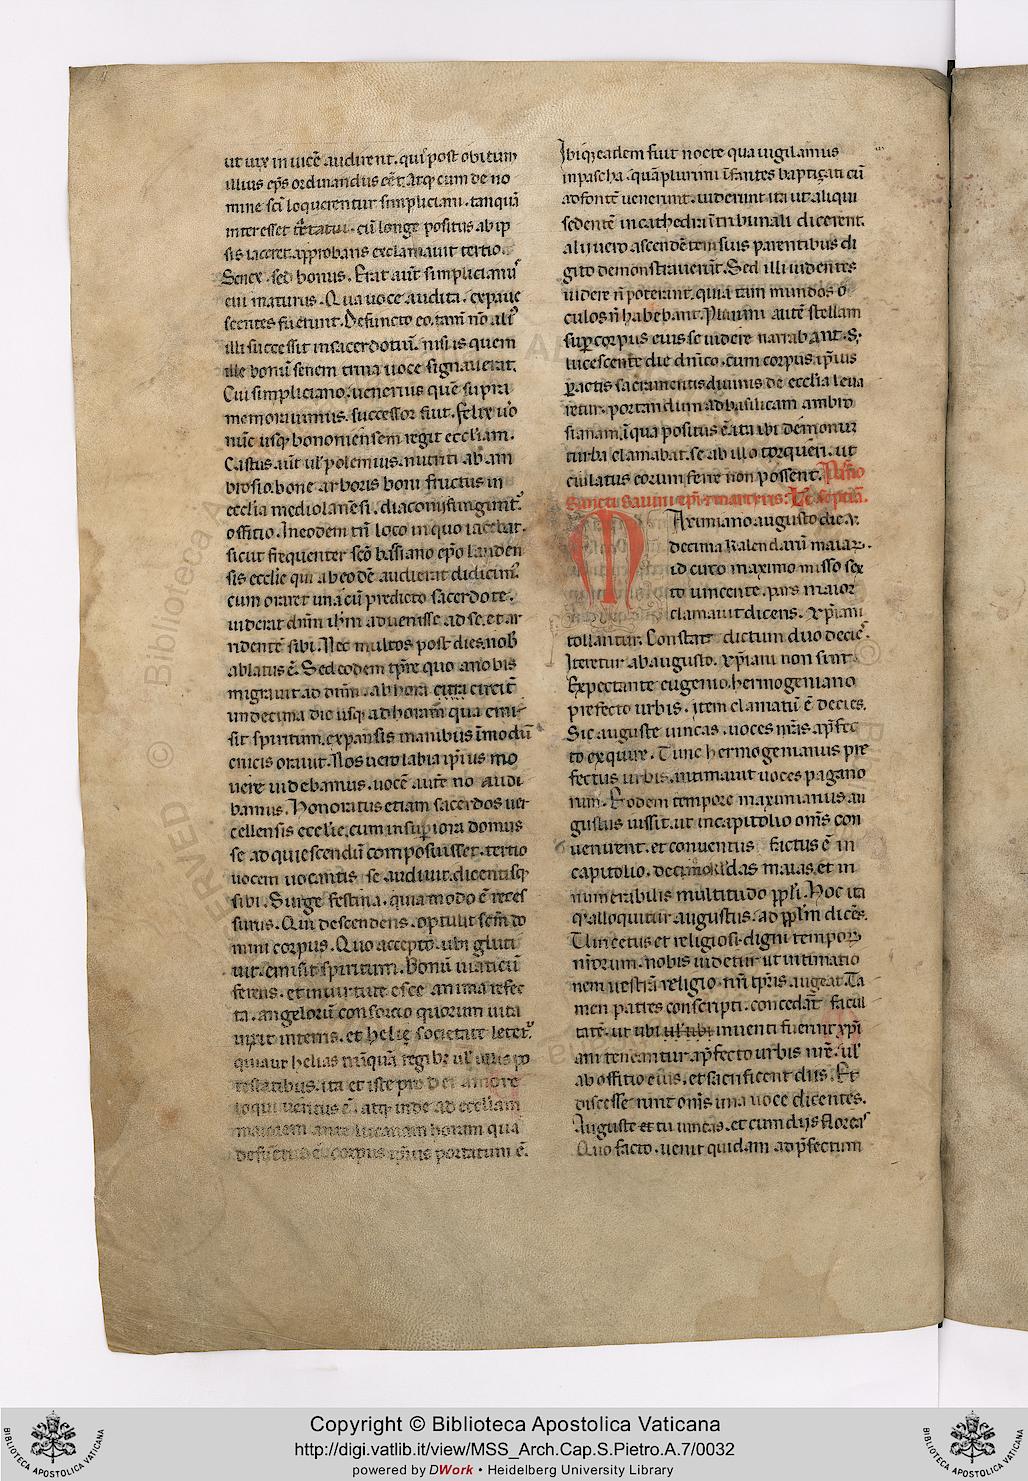 ut uix inuicē audirent. qui post obitum
illius ep̄s ordinandus eēt. Atq; cum de no
mine sc̄i loquerentur simpliciani. tanquā
interesset tr̄tatui. cū longe positus ab ip
sis iaceret. approbans exclamauit tertio.
Senex. sed bonus. Erat aut̄ simplicianus
eui maturus. Qua uoce audita. expaue
scentes fugerunt. Defuncto eo. tam̄ nō ali'
illi successit insacerdotiū. nisi is quem
ille bonū senem trina uoce signauerat.
Cui simpliciano. uenerius quē supra
memorauimus. successor fuit. felix uō
nūc usq; bononiensem regit eccl̄iam.
Castus. aut̄ ul' polemius. nutriti ab am
brosio. bone arboris boni fructus in
eccl̄ia mediolanēsi. diaconii funguntur
offitio. Ineodem tn̄ loco inquo iacebat.
sicut frequenter sc̄o bassiano ep̄o lauden
sis eccl̄ie qui ab eodē audierat didicim'.
cum oraret unā cū predicto sacerdote.
uiderat dn̄m ih̄m aduenisse ad se. et ar
ridentē sibi. Nec multos post dies. nob̄
ablatus ē. Sed eodem tp̄re quo anobis
migrauit ad dn̄m. ab hora circit̄
undecima die usq; ad horam qua emi
sit spiritum. expansis manibus īmodū
crucis orauit. Nos uero labia ip̄ius mo
uere uidebamus. uocē aut̄ nō audi
bamus. Honoratus etiam sacerdos uer
cellensis eccl̄ie. cum insup̄iora domus
se ad quiescendū composuisset. tertio
uocem uocantis se audiuit. dicentisq;
sibi. Surge festina. quia modo ē reces
surus. Qui descendens. optulit sc̄m do
mini corpus. Quo accepto. ubi gluti
uit. emisit spiritum. Bonū uiaticū
ferens. et inuirtute esce anima refec
ta. angelorū consorcio quorum uita
uixit interris. et helie societate letet'.
quia ut helias nūquā regib; ul' ullis po
testatibus. ita et iste pro dei amore
loqui ueritus ē. atq; inde ad eccl̄iam
maiorem ante lucanam horam qua
defunctus ē. corpus ip̄ius portatum ē.
Ibiq; eadem fuit nocte qua uigilamus
inpascha. quāplurimi īfantes baptizati cū
adfontē uenerunt. uiderunt ita ut aliqui
sedentē incathedra ītribunali dicerent.
alii uero ascendētem suis parentibus di
gito demonstrauerūt. Sed illi uidentes
uidere n̄ poterant. quia tam mundos o
culos n̄ habebant. Plurimi autē stellam
sup̄ corpus eius se uidere narrabant. S;
lucescente die dn̄ico. cum corpus ip̄ius
p̄actis sacramentis diuinis de eccl̄ia leua
retur. portandum ad basilicam ambro
sianam. ī qua positus ē. ita ibi demonum
turba clamabat. se ab illo torqueri. ut
eiulatus eorum ferre non possent. Passio
Sancti Sauini ep̄i et martyris. Lc̄ septima.
Maximiano augusto die .v.
decima kalendarū maiar.
id circo maximo misso sex
to uincente. pars maior
clamauit dicens. xp̄iani
tollantur. Constat dictum duo decies.
Iteretur ab augusto. xp̄iani non sint.
Expectante eugenio. hermogeniano
prefecto urbis. item clamatū ē decies.
Sic auguste uincas. uoces nr̄as a p̄fec
to exquire. Tunc hermogenianus pre
fectus urbis. intimauit uoces pagano
rum. Eodem tempore maximianus au
gustus iussit. ut incapitolio om̄s con
uenirent. et conuentus factus ē in
capitolio. decimo kl'das maias. et in
numerabilis multitudo pp̄li. Hoc ita
q; alloquitur augustus. ad pp̄lm dicēs.
Cunctus et religiosi. digni tempor
nr̄orum. nobis uidetur ut intimatio
nem uestrā religio nr̄i tp̄ris augeat. Ta
men patres conscripti. concedat̄ facul
tatē. ut ubi ul' ubi inuenti fuerint xp̄i
ani teneantur. a p̄fecto urbis nr̄e. ul'
ab offitio eius. et sacrificent diis. Et
discesserunt om̄s una uoce dicentes.
Auguste et tu uincas. et cum diis floreas
Quo facto. uenit quidam ad p̄fectum
Copyright © Biblioteca Apostolica Vaticana
http://digi.vatlib.it/view/MSS_Arch.Cap.S.Pietro.A.7/0032
powered by DWork • Heidelberg University Library
BIBLIOTECA APOSTOLICA VATICANA
BIBLIOTECA APOSTOLICA VATICANA